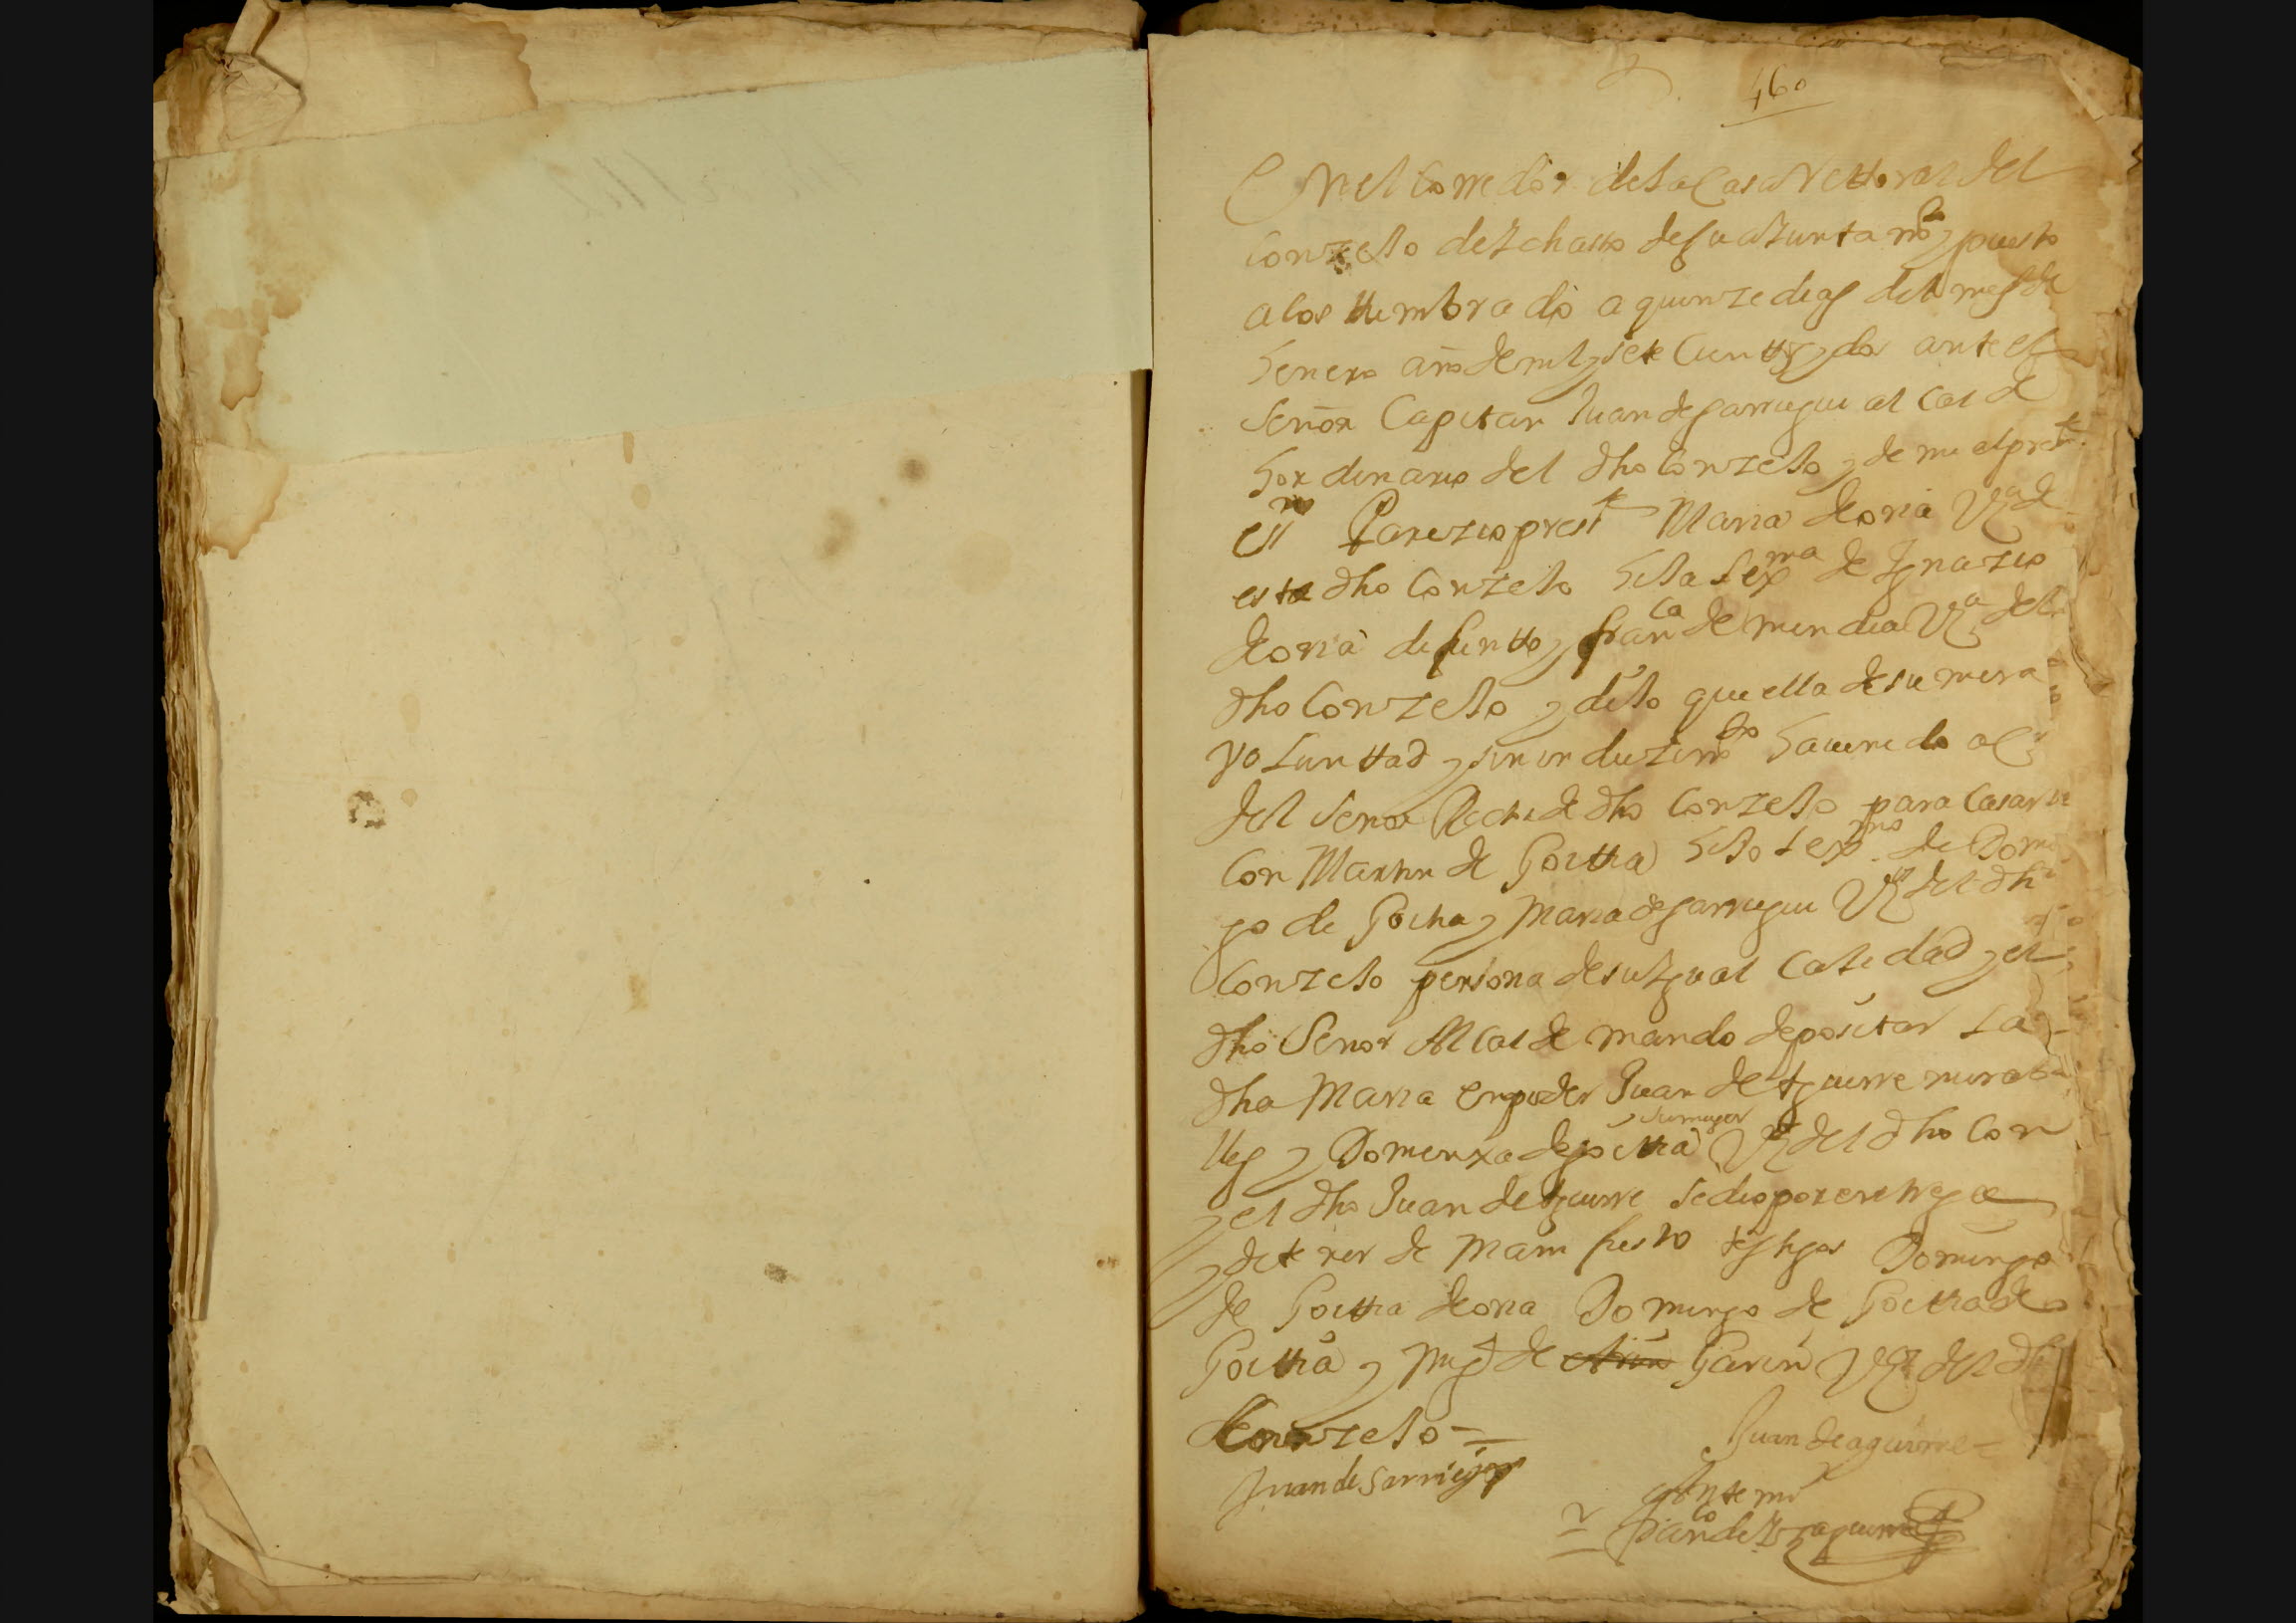 460
En el Corredor de la Casa Rettoral del
Conzejo de Ichasso de su aiuntam.to y puesto
acosttumbrado a quinze dias del mes de
henero año de mil y sete Cienttos y dos ante el
Señor Capitan Juan de sarriegui alcalde
hordinario del dho Conzejo y de mi el pres.te
ess.no Parezio press.te Maria de oria Vz.a de
este dho Conzejo hija lex.ma de Ignazio
de oria difuntto y fran.ca de mendia Vz.a del
dho Conzejo y dijo que ella de su mera
volunttad y sin induzim.to ha venido a
del Senor Retor de dho Conzejo para Casarse
Con Martin de Goittia hijo lex.mo de Domin
go de Goitia y Maria de sarriegui Vz.os del dho
Conzejo persona de su Igual Calidad y el
dho Senor Alcalde mando depositar la
dha Maria en poder Juan de Aguirre
y Domenxa de goittia su muger Vz.os del dho Con
y el dho Juan de Aguirre se dio por entrega
y de tener de manifiesto testigos Domingo
de Goittia de oria Domingo de Goittia de
Goittia y Mig.l de Garin Vz.os del dho
Conzejo =
Juan de aguirre =
Juan de Sarriegui
Ante mi
Fran.co de Yzaguirre